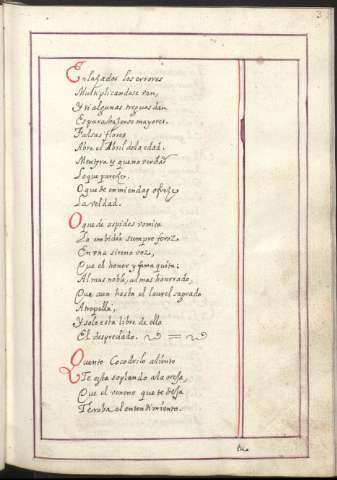 3
Enlaçados los errores
Multiplicandose van,
Y si algunas treguas dan
Es para hazerse mayores.
Falsas flores
Abre el Abril de la edad.
Mentira y que no verdad
Lo que parece.
O que de enmiendas ofreçe
La veldad.
O que de aspides vomita
La embidia siempre feroz
En vna sirena voz,
Que el honor y fama quita;
Al mas noble, al mas honrrado,
Que aun hasta el laurel sagrado
Atropella,
Y solo esta libre de ella
El despreciado.
Quanto Cocodrilo astuto
Te esta soplando a la oreja,
Que el veneno que te deja
Te roba el entendimiento.